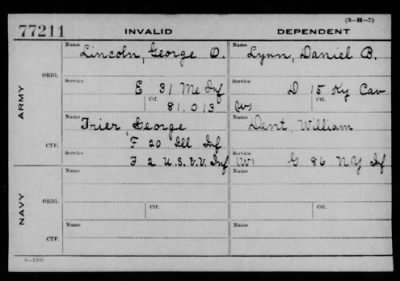 (3-H-2)
77211 INVALID DEPENDENT
Name Lincoln, George O. Name Lynn, Daniel B.
ARMY
ORIG.
Service E 31 Me Inf Service D 15 Ky Cav
Ctf. 81.013 Ctf. (W)
Name Trier, George Name Dent, William
F 20 Ill Inf
CTF.
Service F 2 U.S.V.V. Inf Service (W) G 86 NY Inf
NAVY
Name Name
ORIG.
Ctf. Ctf.
Name Name
CTF.